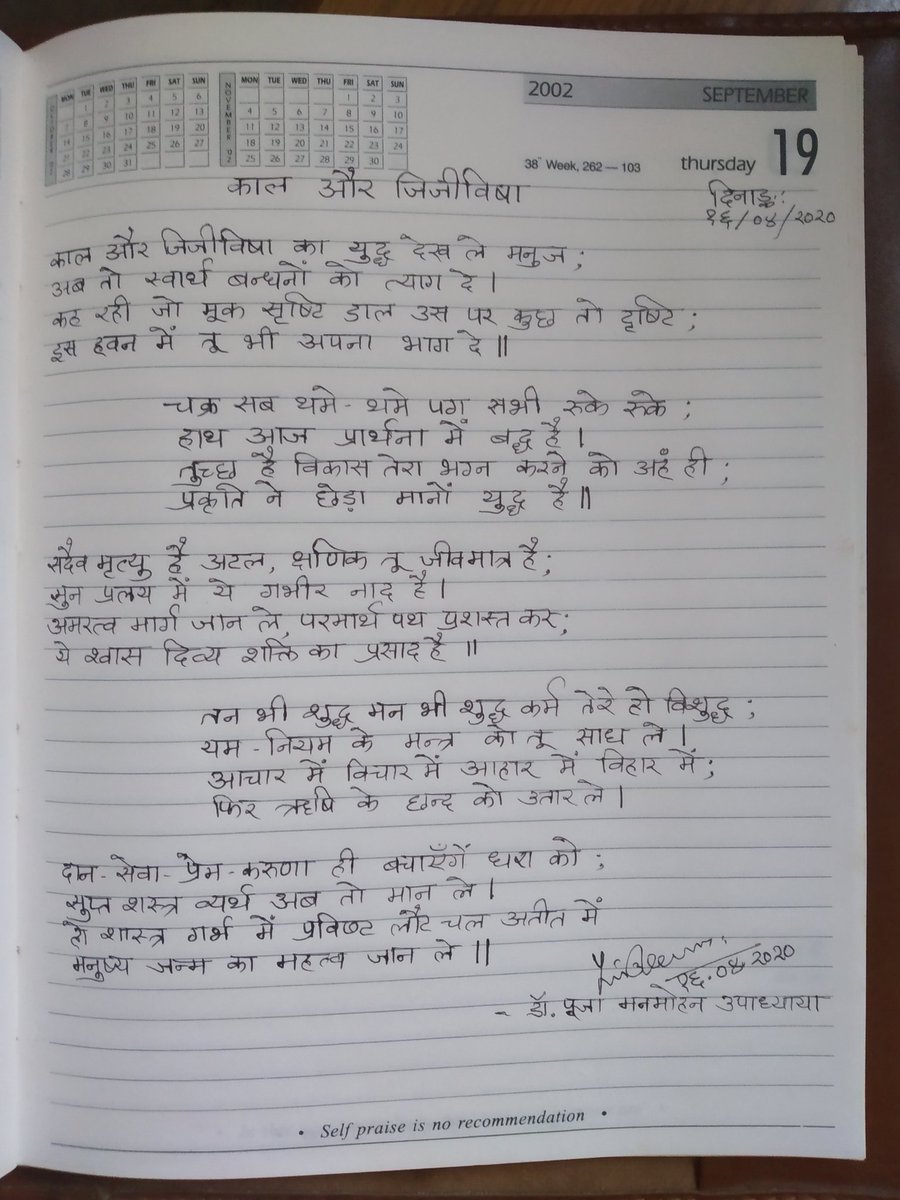 OCTOBER '02
MON TUE WED THU FRI SAT SUN
1 2 3 4 5 6
7 8 9 10 11 12 13
14 15 16 17 18 19 20
21 22 23 24 25 26 27
28 29 30 31
NOVEMBER '02
MON TUE WED THU FRI SAT SUN
1 2 3
4 5 6 7 8 9 10
11 12 13 14 15 16 17
18 19 20 21 22 23 24
25 26 27 28 29 30
2002 SEPTEMBER
38" Week, 262 — 103 thursday 19
काल और जिजीविषा
दिनाङ्क:
१६/०४/२०२०
काल और जिजीविषा का युद्ध देख ले मनुज ;
अब तो स्वार्थ बन्धनों को त्याग दे ।
कह रही जो मूक सृष्टि डाल उस पर कुछ तो दृष्टि ;
इस हवन में तू भी अपना भाग दे ॥
चक्र सब थमे - थमे पग सभी रुके रुके ;
हाथ आज प्रार्थना में बद्ध है ।
तुच्छ है विकास तेरा भग्न करने को अहं ही ;
प्रकृति ने छेड़ा मानों युद्ध है ॥
सदैव मृत्यु है अटल, क्षणिक तू जीवमात्र है;
सुन प्रलय में ये गभीर नाद है ।
अमरत्व मार्ग जान ले, परमार्थ पथ प्रशस्त कर;
ये श्वास दिव्य शक्ति का प्रसाद है ॥
तन भी शुद्ध मन भी शुद्ध कर्म तेरे हो विशुद्ध ;
यम - नियम के मन्त्र को तू साध ले ।
आचार में विचार में आहार में विहार में ;
फिर ऋषि के छन्द को उतार ले ।
दान - सेवा - प्रेम - करुणा ही बचाएँगें धरा को ;
सुप्त शस्त्र व्यर्थ अब तो मान ले ।
हो शास्त्र गर्भ में प्रविष्ट लौट चल अतीत में
मनुष्य जन्म का महत्व जान ले ॥
१६.०४.२०२०
- डॉ. पूजा मनमोहन उपाध्याया
• Self praise is no recommendation •